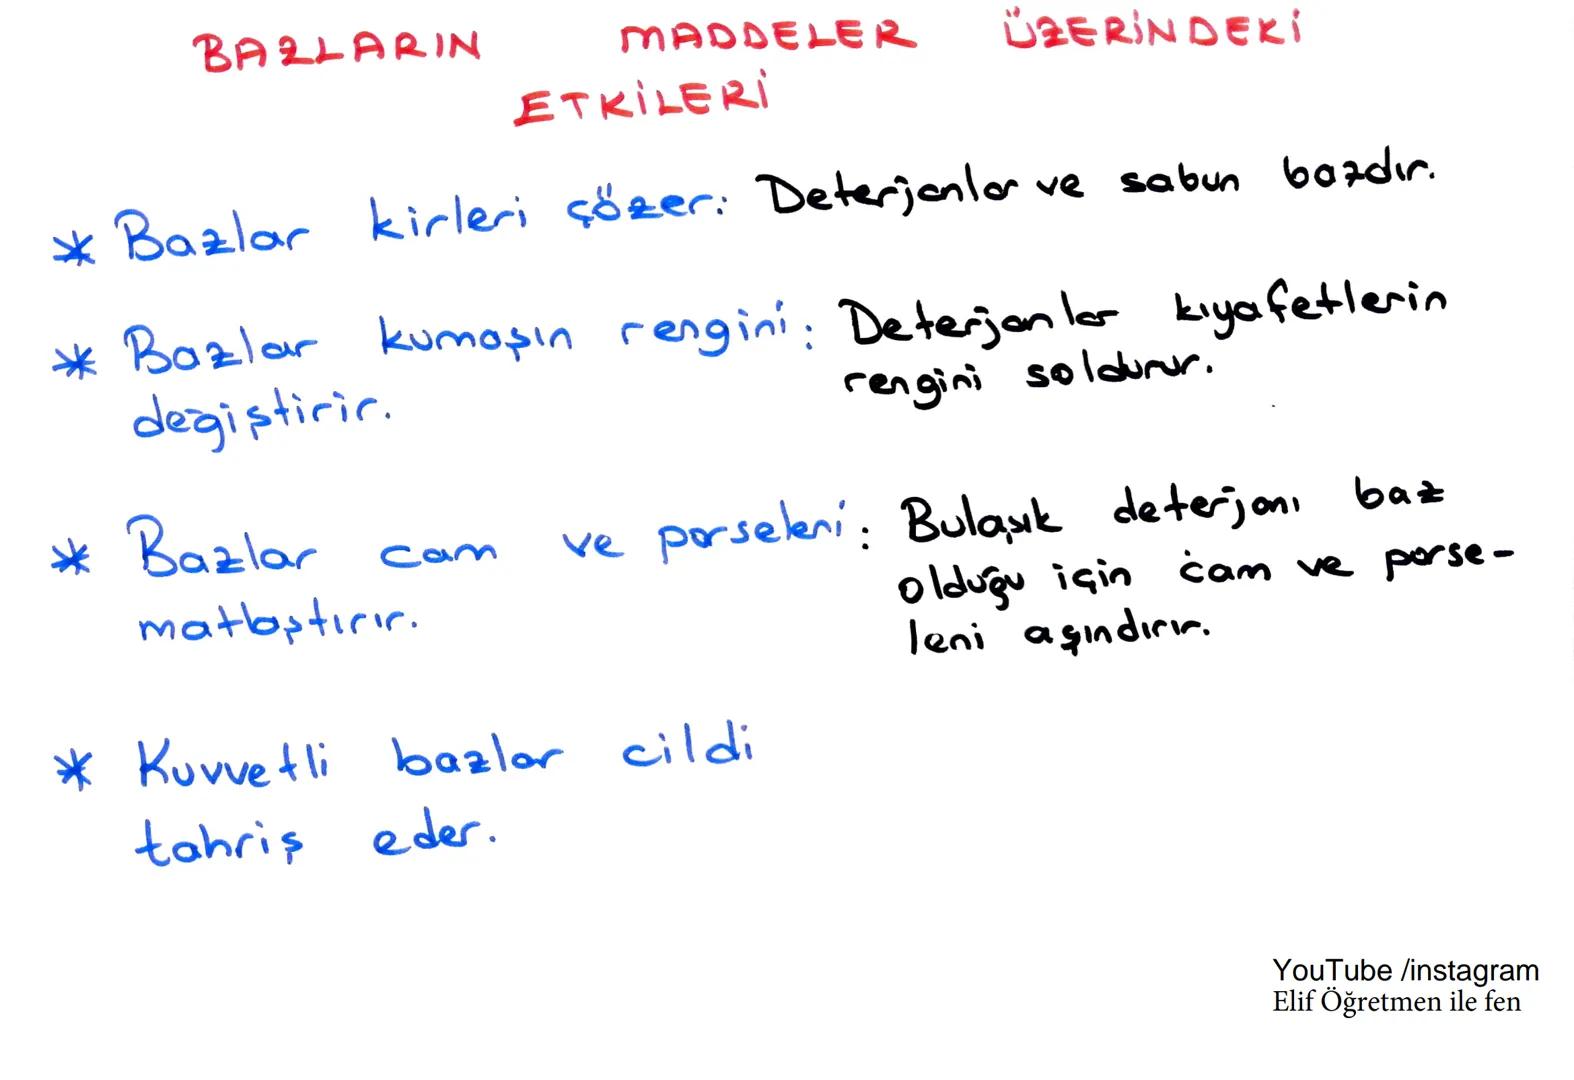 BAZLARIN MADDELER ÜZERİNDEKİ
ETKİLERİ
* Bazlar kirleri çözer: Deterjanlar ve sabun bazdır.
* Bazlar kumaşın rengini: Deterjanlar kıyafetlerin
değiştirir. rengini soldurur.
* Bazlar cam ve porseleni: Bulaşık deterjanı baz
olduğu için cam ve porse-
matlaştırır. leni aşındırır.
* Kuvvetli bazlar cildi
tahriş eder.
YouTube /instagram
Elif Öğretmen ile fen